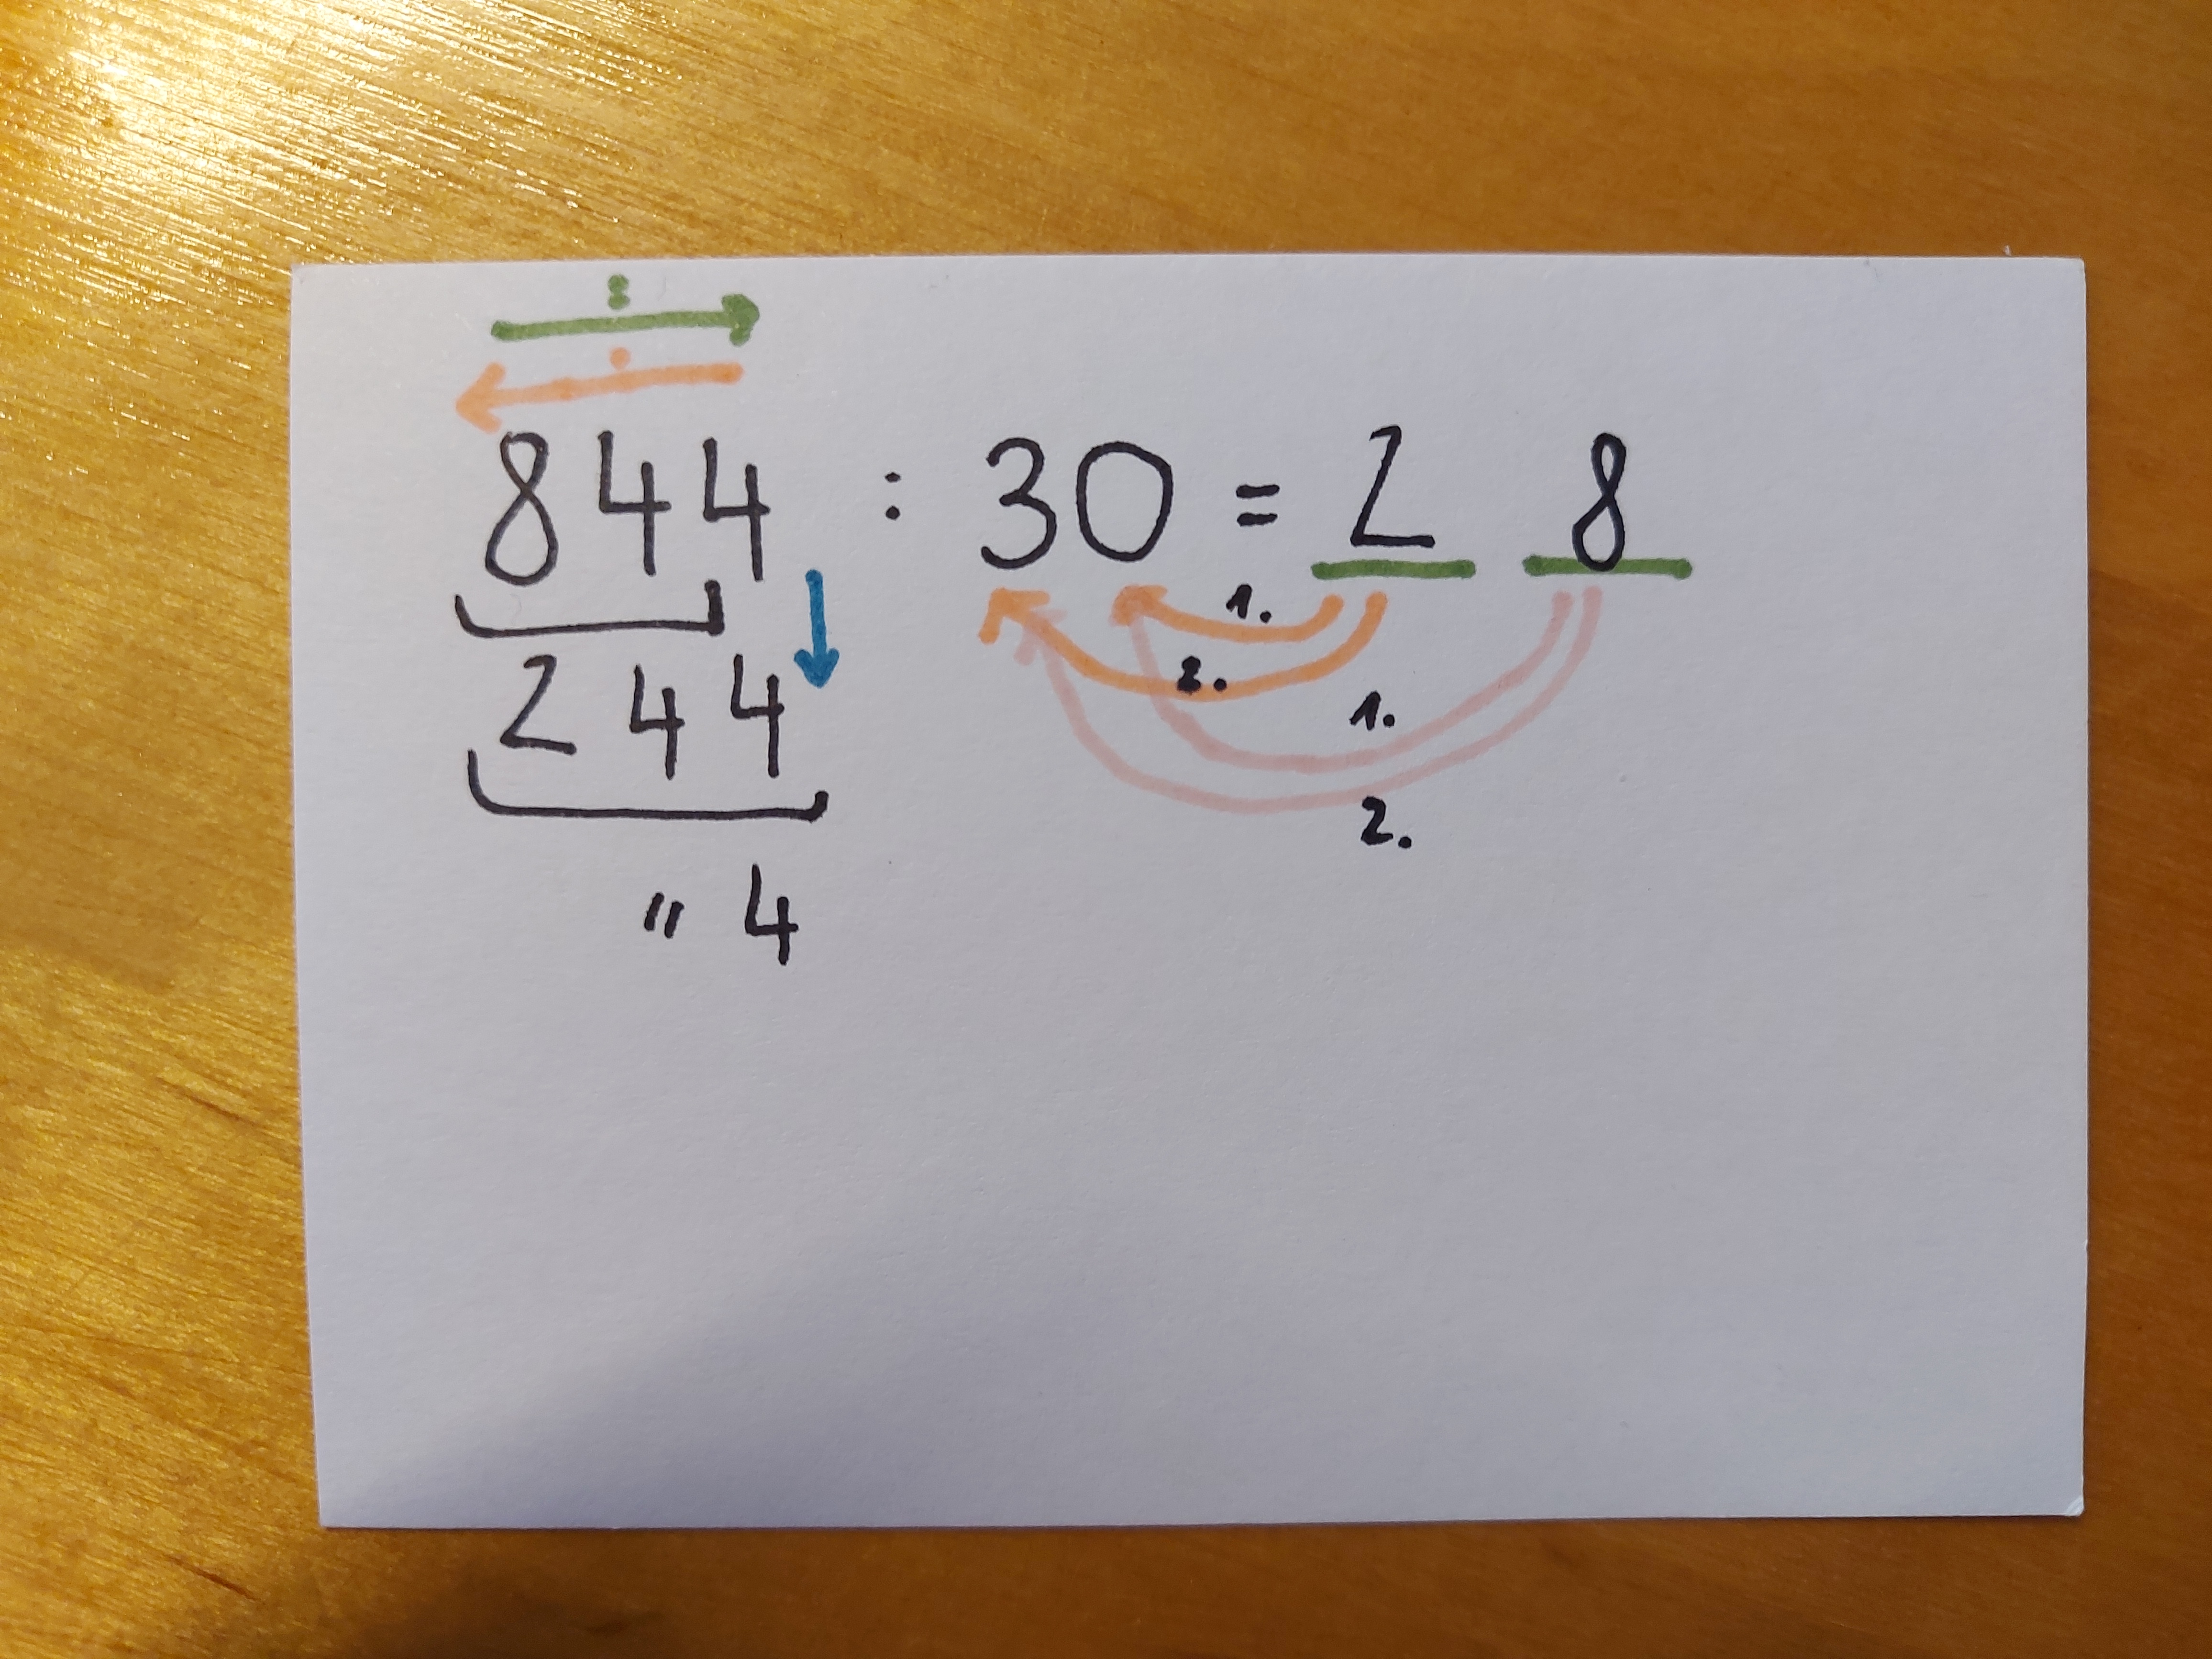 :
·
844 : 30 = 2 8
1.
244
2.
1.
2.
" 4